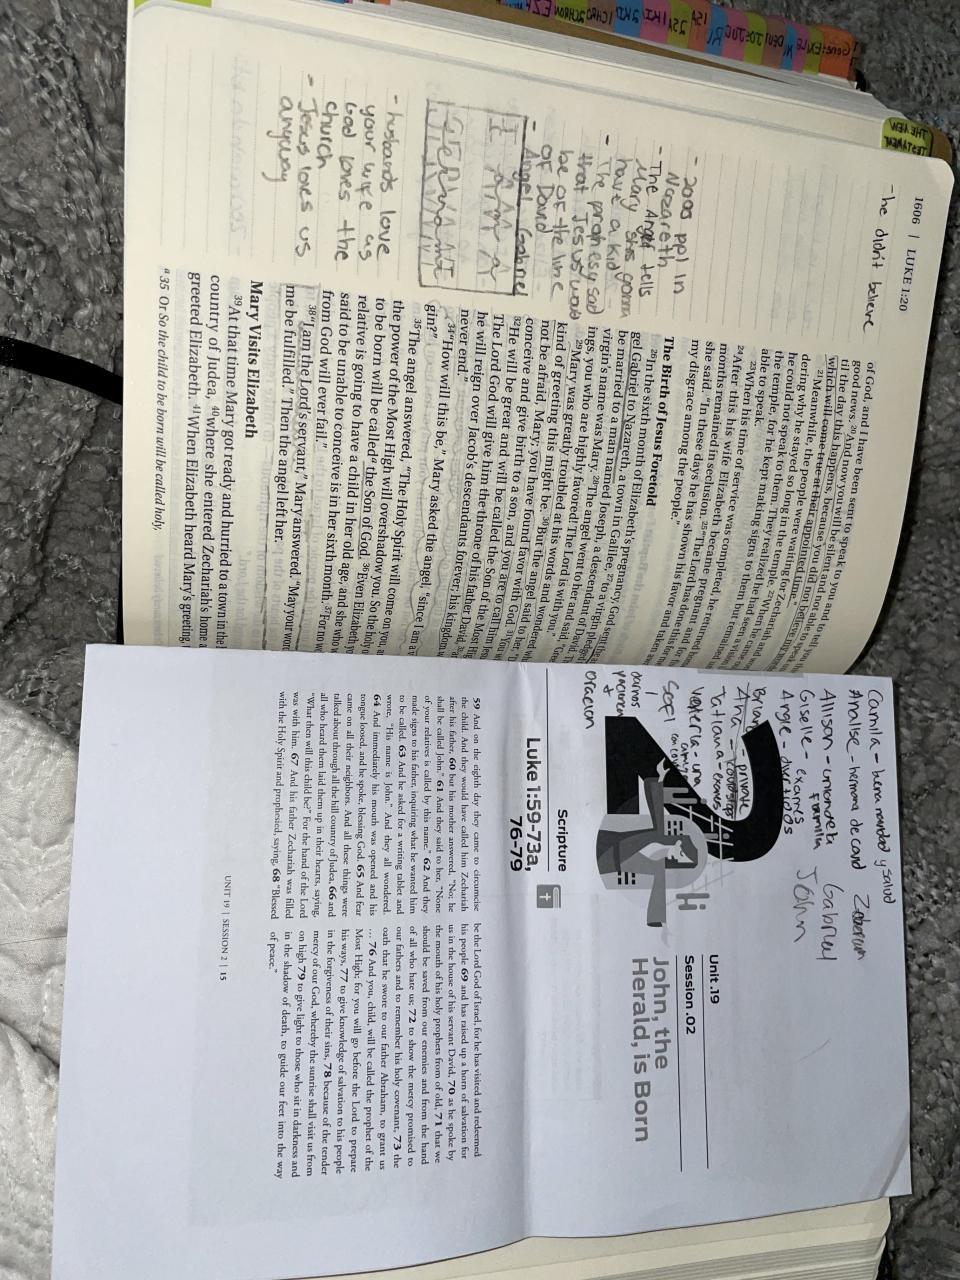 1606 | LUKE 1:20
- he didn't believe
of God, and I have been sent to speak to you and to
good news. 20 And now you will be silent and not able
til the day this happens, because you did not
which will come true at their appointed time."
21 Meanwhile, the people were waiting for Zechariah and
dering why he stayed so long in the temple. 22 When he
he could not speak to them. They realized he had seen a
the temple, for he kept making signs to them but
able to speak.
23 When his time of service was completed, he returned
24 After this his wife Elizabeth became pregnant and
months remained in seclusion. 25 "The Lord has done this
she said. "In these days he has shown his favor and taken
my disgrace among the people."
The Birth of Jesus Foretold
26 In the sixth month of Elizabeth's pregnancy, God sent
gel Gabriel to Nazareth, a town in Galilee, 27 to a virgin
be married to a man named Joseph, a descendant of David.
virgin's name was Mary. 28 The angel went to her and said,
ings, you who are highly favored! The Lord is with you."
29 Mary was greatly troubled at his words and wondered
kind of greeting this might be. 30 But the angel said to her,
not be afraid, Mary; you have found favor with God.
conceive and give birth to a son, and you are to call him
32 He will be great and will be called the Son of the Most
The Lord God will give him the throne of his father David,
he will reign over Jacob's descendants forever; his kingdom
never end."
34 "How will this be," Mary asked the angel, "since I am a
gin?"
35 The angel answered, "The Holy Spirit will come on you,
the power of the Most High will overshadow you. So the holy
to be born will be called a the Son of God. 36 Even Elizabeth
relative is going to have a child in her old age, and she who
said to be unable to conceive is in her sixth month. 37 For no
from God will ever fail."
38 "I am the Lord's servant," Mary answered. "May your word
me be fulfilled." Then the angel left her.
Mary Visits Elizabeth
39 At that time Mary got ready and hurried to a town in the
country of Judea, 40 where she entered Zechariah's home
greeted Elizabeth. 41 When Elizabeth heard Mary's greeting,
a 35 Or So the child to be born will be called holy,
- 2000 ppl in
Nazareth
- The Angel tells
Mary shes gonna
have a kid
- The prophesy said
that Jesus would
be of the line
of David
- Angel Gabriel
I am a
- husbands love
your wife as
God loves the
church
- Jesus loves us
anyway
THE NEW
TESTAMENT
Camila - herma
y salud
Analise - hermana de card
Allison -
familia
Giselle - exams
Ange -
- private
Tatiana - exams
Sofi
oracion
Zacharian
Gabriel
John
Unit .19
Session .02
John, the
Herald, is Born
Scripture
Luke 1:59-73a,
76-79
59 And on the eighth day they came to circumcise
the child. And they would have called him Zechariah
after his father, 60 but his mother answered, "No; he
shall be called John." 61 And they said to her, "None
of your relatives is called by this name." 62 And they
made signs to his father, inquiring what he wanted him
to be called. 63 And he asked for a writing tablet and
wrote, "His name is John." And they all wondered.
64 And immediately his mouth was opened and his
tongue loosed, and he spoke, blessing God. 65 And fear
came on all their neighbors. And all these things were
talked about through all the hill country of Judea, 66 and
all who heard them laid them up in their hearts, saying,
"What then will this child be?" For the hand of the Lord
was with him. 67 And his father Zechariah was filled
with the Holy Spirit and prophesied, saying, 68 "Blessed
be the Lord God of Israel, for he has visited and redeemed
his people 69 and has raised up a horn of salvation for
us in the house of his servant David, 70 as he spoke by
the mouth of his holy prophets from of old, 71 that we
should be saved from our enemies and from the hand
of all who hate us; 72 to show the mercy promised to
our fathers and to remember his holy covenant, 73 the
oath that he swore to our father Abraham, to grant us
... 76 And you, child, will be called the prophet of the
Most High; for you will go before the Lord to prepare
his ways, 77 to give knowledge of salvation to his people
in the forgiveness of their sins, 78 because of the tender
mercy of our God, whereby the sunrise shall visit us from
on high 79 to give light to those who sit in darkness and
in the shadow of death, to guide our feet into the way
of peace."
UNIT 19 | SESSION 2 | 15